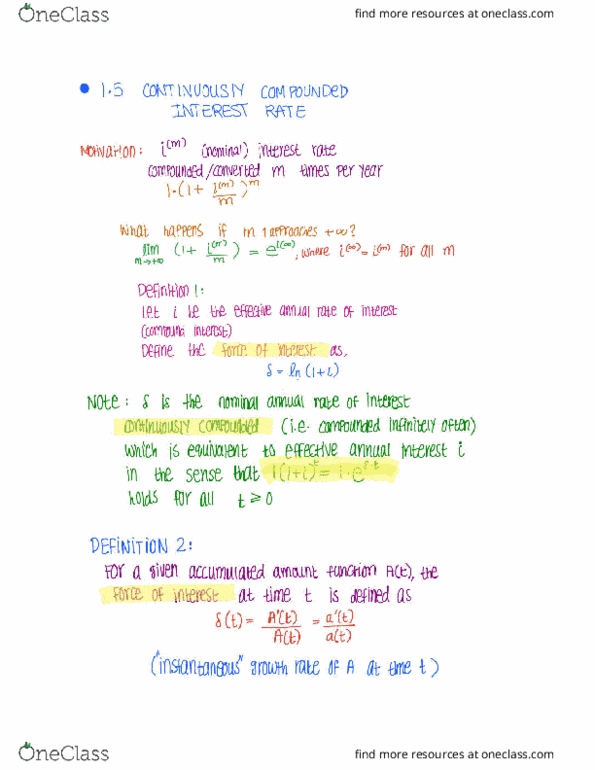 OneClass
find more resources at oneclass.com
• 1.5 CONTINUOUSLY COMPOUNDED
INTEREST RATE
MOTIVATION: i^(m) (nominal) interest rate
compounded/converted m times per year
1·(1+ i^(m)/m)^m
What happens if m ↑ approaches +∞?
lim m→+∞ (1+ i^(m)/m) = e^i(∞), where i^(∞) = i^(m) for all m
Definition 1:
Let i be the effective annual rate of interest
(compound interest)
Define the force of interest as,
δ = ln (1+i)
NOTE: δ is the nominal annual rate of interest
continuously compounded (i.e. compounded infinitely often)
which is equivalent to effective annual interest i
in the sense that 1(1+i)^t = 1·e^δ·t
holds for all t ≥ 0
DEFINITION 2:
FOR a given accumulated amount function A(t), the
force of interest at time t is defined as
δ(t) = A'(t)/A(t) = a'(t)/a(t)
("instantaneous" growth rate of A at time t)
OneClass
find more resources at oneclass.com